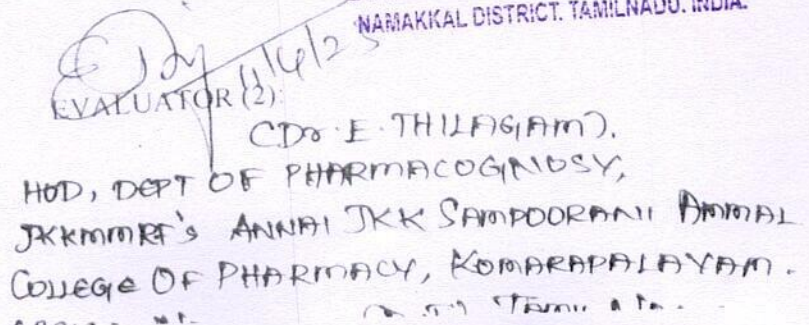 NAMAKKAL DISTRICT. TAMILNADU. INDIA.
EVALUATOR (2)
(Dr. E. THILAGAM).
HOD, DEPT OF PHARMACOGNOSY,
JKKMMRF's ANNAI JKK SAMPOORANI AMMAL
COLLEGE OF PHARMACY, KOMARAPALAYAM.